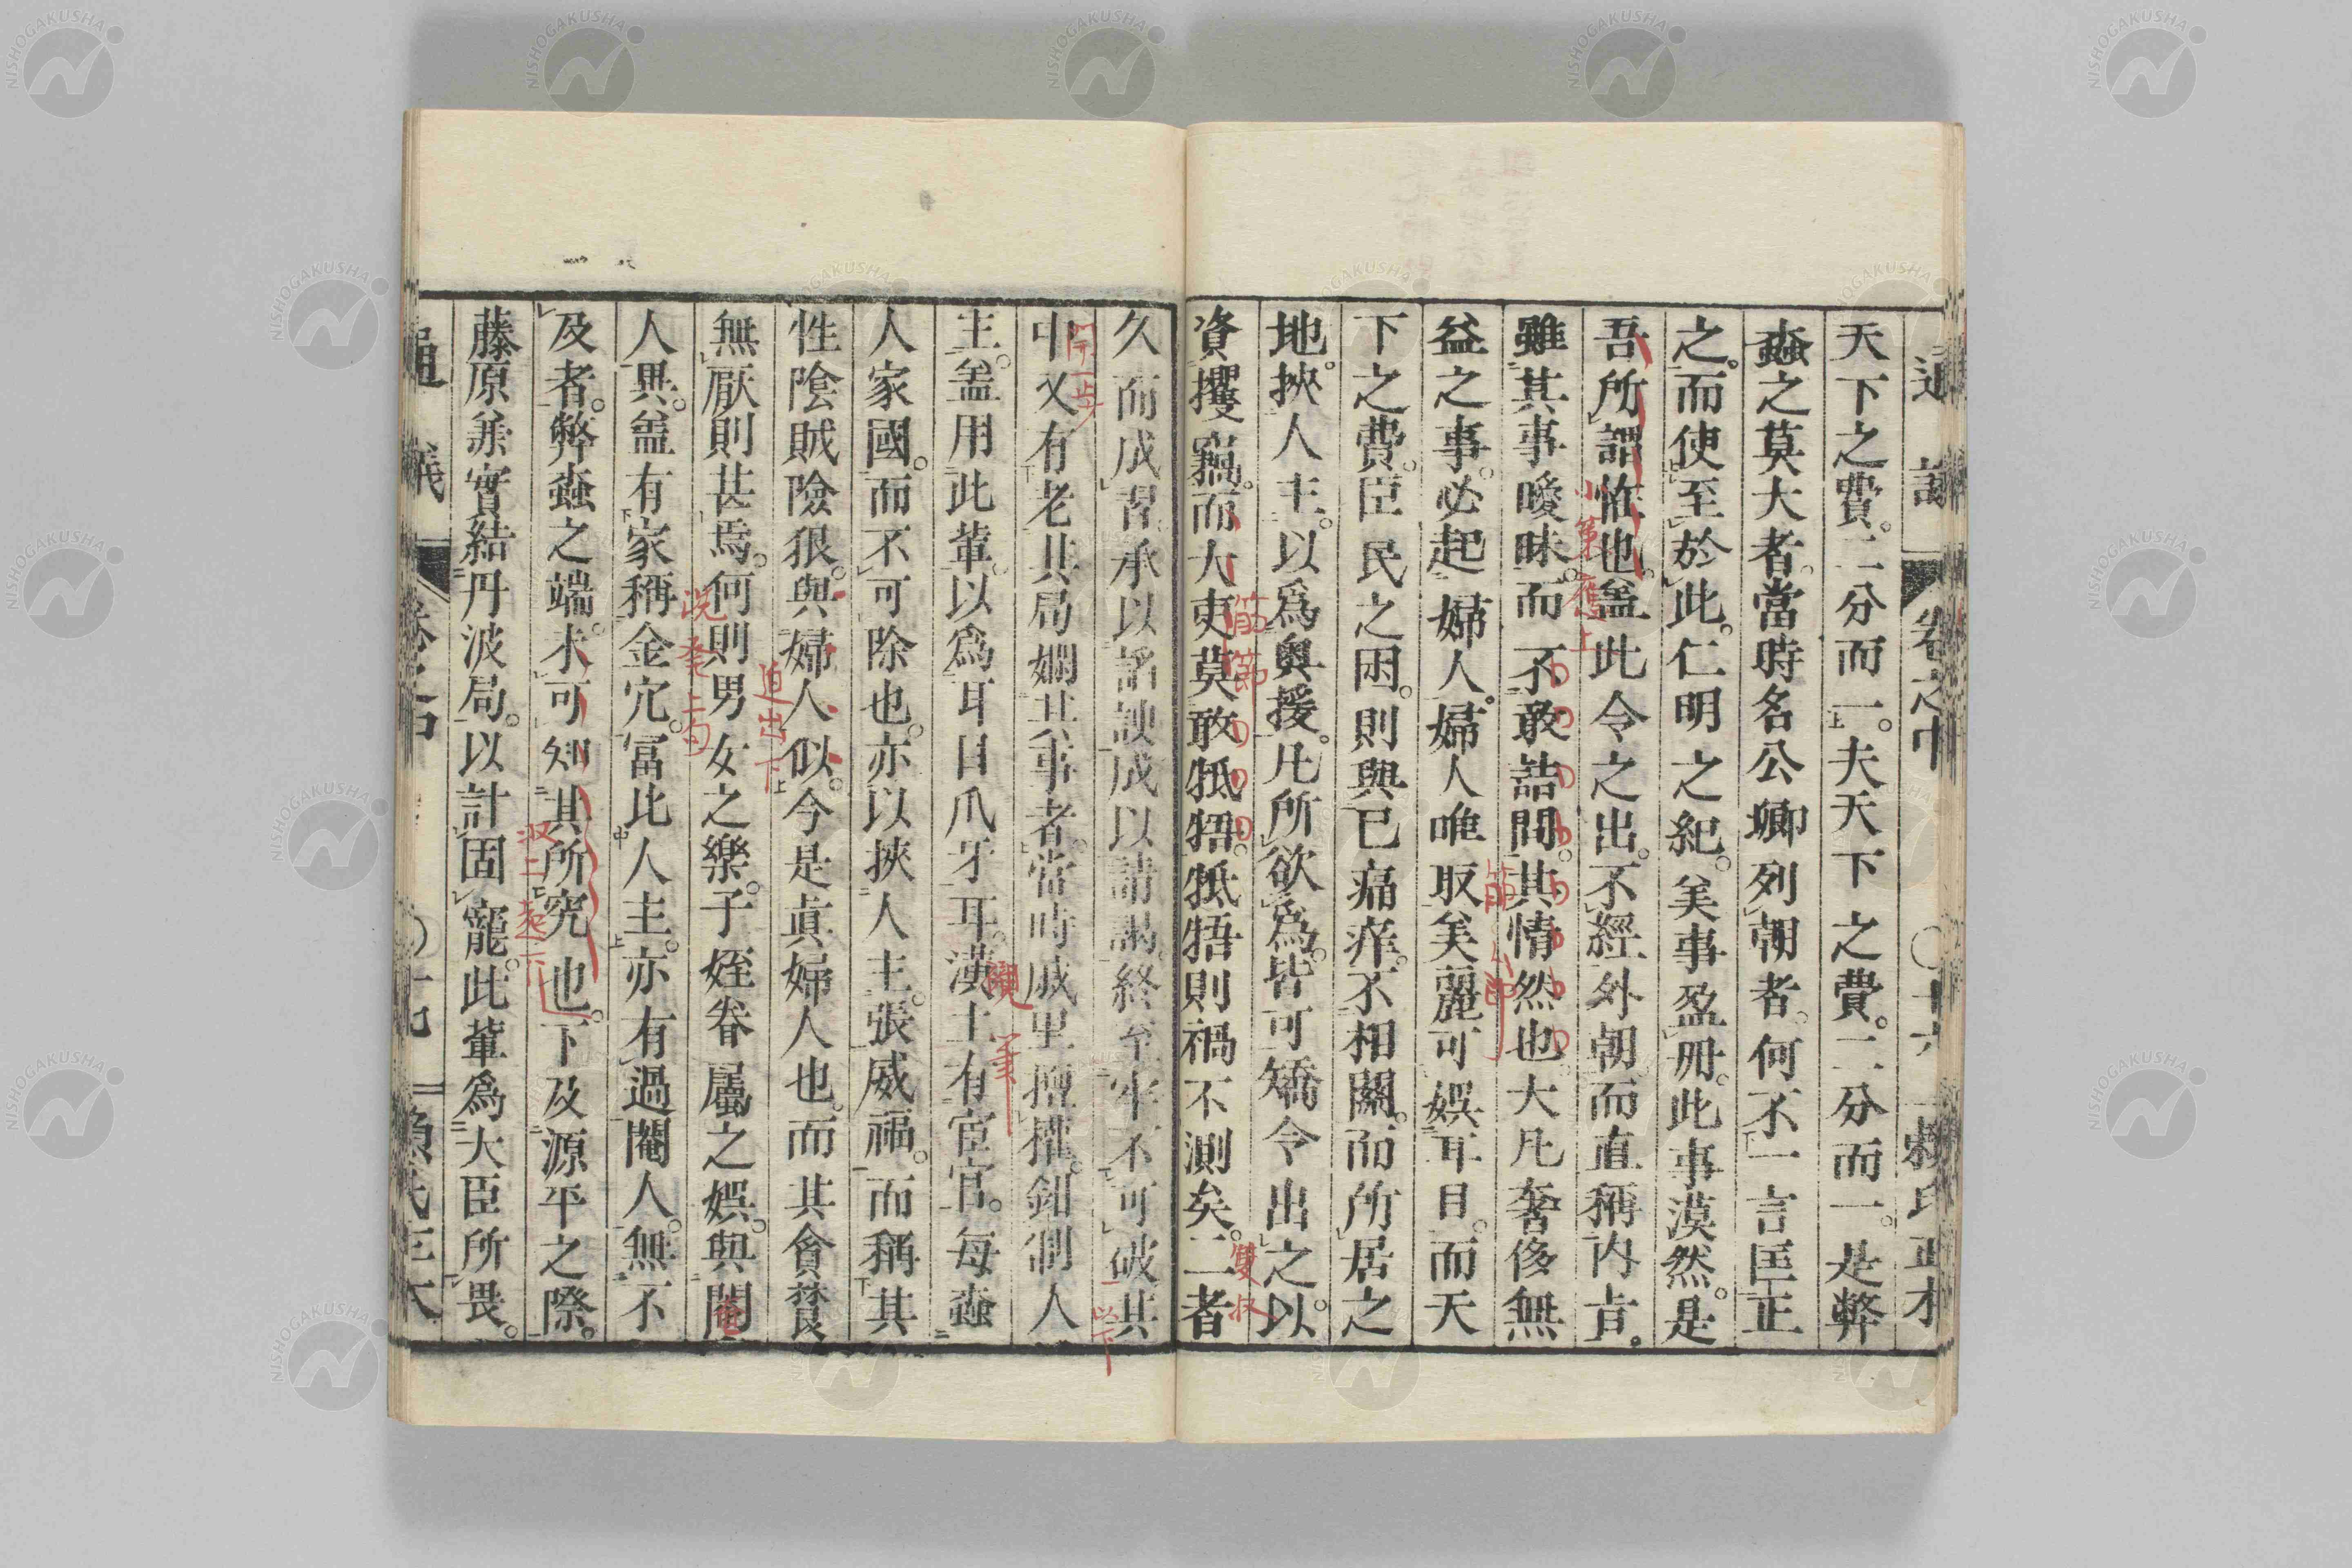 通議 卷之中 〇十六 賴氏正本
天下之費。二分而一。夫天下之費。二分而一。是弊
蠧之莫大者。當時名公卿列朝者。何不一言匡正
之。而使至於此。仁明之紀。美事盈册。此事漠然。是
吾所謂怪也。盖此令之出。不經外朝。而直稱内旨。
雖其事曖昧。而不敢詰問。其情然也。大凡奢侈無
益之事。必起婦人。婦人唯取美麗可娯耳目。而天
下之費。臣民之困。則與已痛痒。不相關。而所居之
地。挾人主。以爲奧援。凡所欲爲。皆可矯令出之。以
資攫竊。而大吏莫敢牴牾。牴牾則禍不測矣。二者
久而成習。承以謟諛。成以請謁。終至牢不可破。其
中又有老其局嫻其事者。當時戚里擅權。鉗制人
主。盖用此輩。以爲耳目爪牙耳。漢土有宦官。每蠧
人家國。而不可除也。亦以挾人主。張威福。而稱其
性陰賊險狠。與婦人似。今是眞婦人也。而其貪婪
無厭則甚焉。何則男女之樂。子姪眷屬之娯。與閹
人異。盖有家稱金穴。富比人主。亦有過閹人。無不
及者。弊蠧之端。未可知其所究也。下及源平之際。
藤原兼實結丹波局。以計固寵。此輩爲大臣所畏。
通議 卷之中 〇十七 賴氏正本
小策應上
筋節
節節
雙收
以下
開一步
閑筆
迫出下
說來二句
奄
收二起下